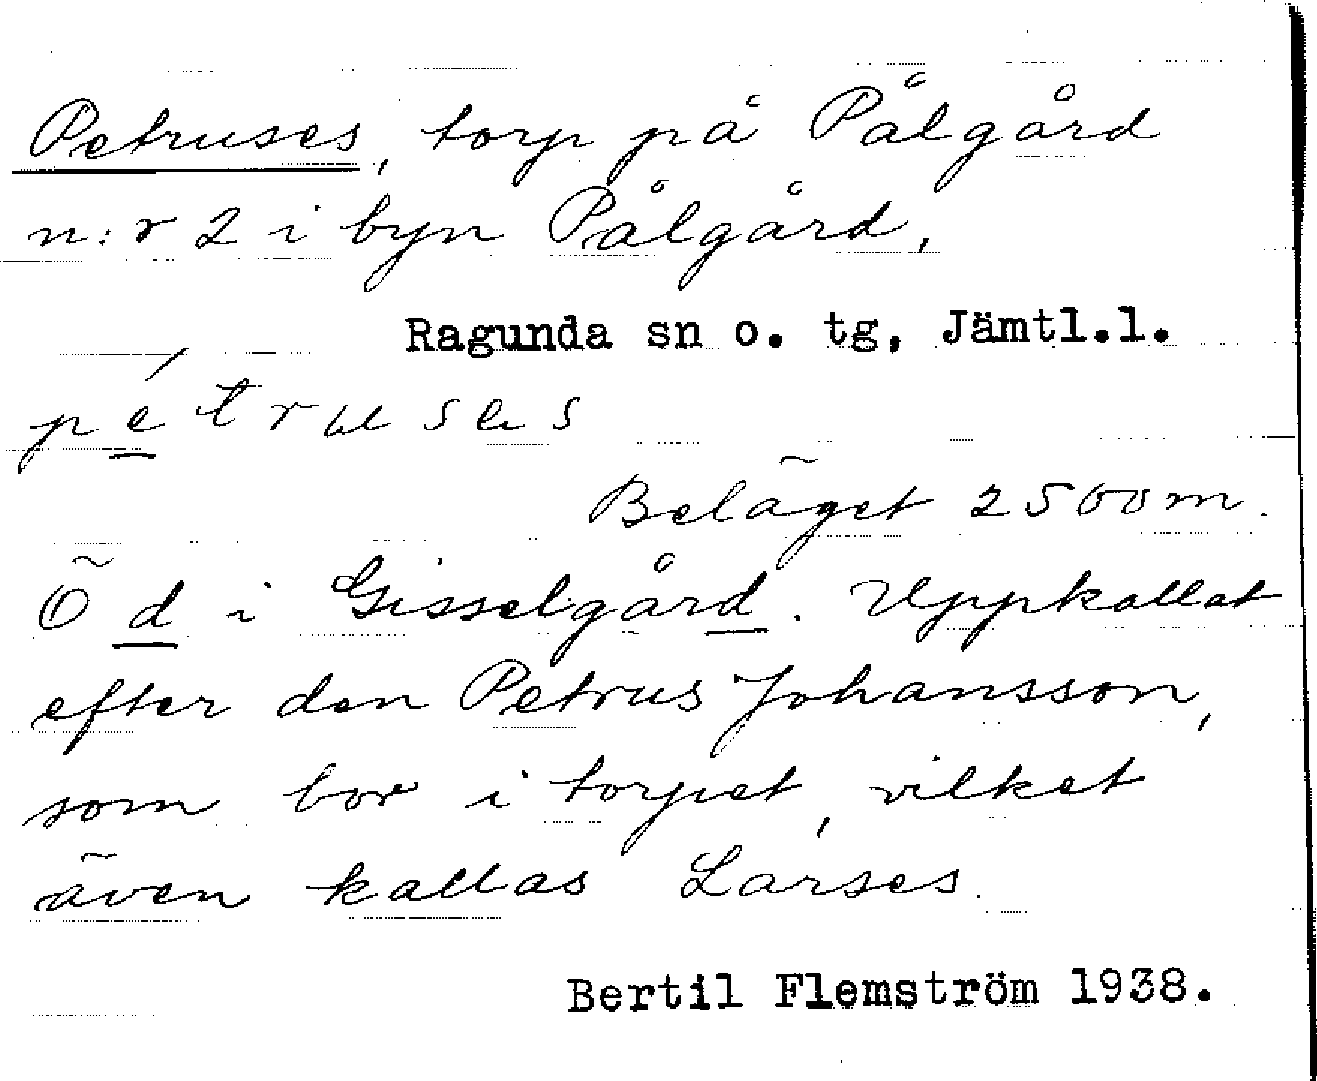 Petruses, torp på Pålgård
n:r 2 i byn Pålgård.
Ragunda sn o. tg, Jämtl.l.
pétruses
Beläget 2500 m.
Ö d i Gisselgård. Uppkallat
efter den Petrus Johansson,
som bor i torpet, vilket
även kallas Larses.
Bertil Flemström 1938.